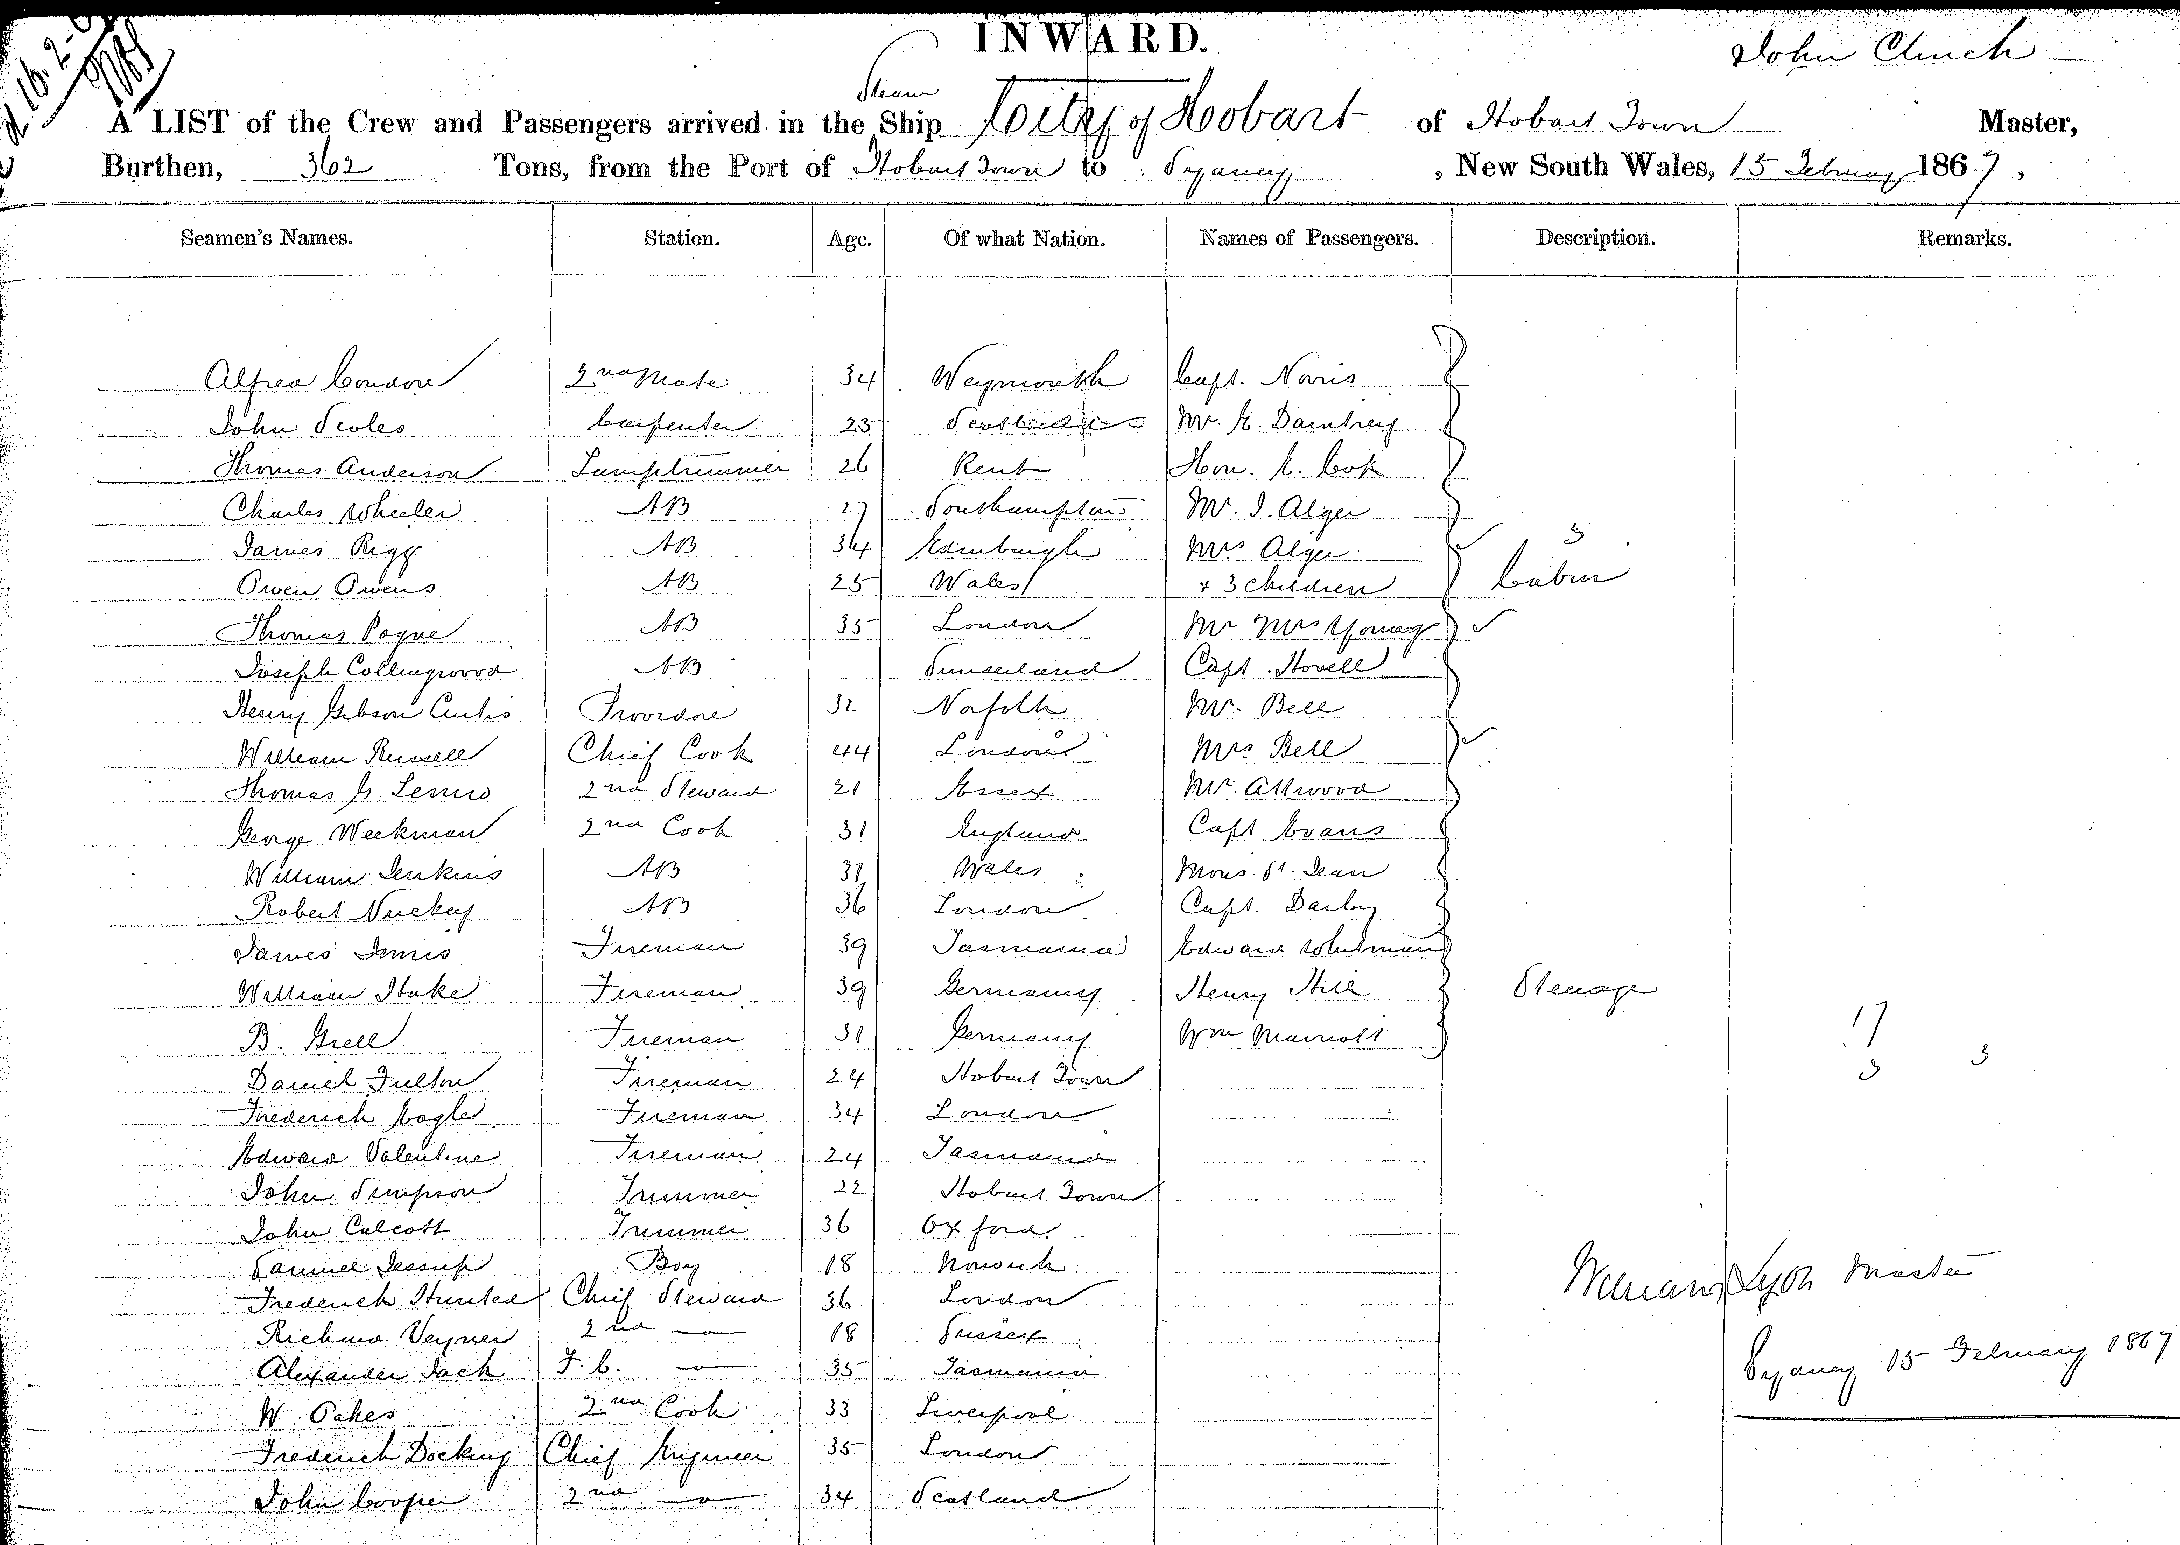 INWARD.
John Clinch
Steam
A LIST of the Crew and Passengers arrived in the Ship City of Hobart of Hobart Town Master,
Burthen, 362 Tons, from the Port of Hobart Town to Sydney, New South Wales, 15 February 1867,
Seamen's Names. Station. Age. Of what Nation. Names of Passengers. Description. Remarks.
Alfred Condon 2nd Mate 34 Weymouth Capt. Norris
John Scoles Carpenter 23 Mr. E. Daintrey
Thomas Anderson Lamptrimmer 26 Kent Hon.
Charles Wheeler AB 27 Southampton Mr. J. Alger
James Rigg AB 34 Edinburgh Mrs Alger 3
Owen Owens AB 25 Wales + 3 children Cabin
Thomas Payne AB 35 London Mr Mrs Young
Joseph Collingwood AB Sunderland Capt. Hovell
Henry Gibson Curtis Provedore 32 Norfolk Mr. Bell
William Russell Chief Cook 44 London Mrs Bell
Thomas G. 2nd Steward 21 Essex Mr. Attwood
George Weekman 2nd Cook 31 England Capt Evans
William Jenkins AB 31 Wales Mons. St. Jean
Robert Nuckey AB 36 London Capt. Darby
James Innis Fireman 39 Tasmania Edward Whitman
William Hake Fireman 39 Germany Henry Hill Steerage
B. Grell Fireman 31 Germany Wm Marriott 17
Daniel Fulton Fireman 24 Hobart Town 3 3
Frederick Cogle Fireman 34 London
Edward Valentine Fireman 24 Tasmania
John Simpson Trimmer 22 Hobart Town
John Calcott Trimmer 36 Oxford
Samuel Jessup Boy 18 Norwich
Frederick Hunted Chief Steward 36 London
William Lyon Master
Richard Veyner 2nd —o— 18 Sussex
Alexander Jack F. C. —o— 35 Tasmania
Sydney 15 February 1867
W. Oakes 2nd Cook 33 Liverpool
Frederick Docking Chief Engineer 35 London
John Cooper 2nd —o— 34 Scotland